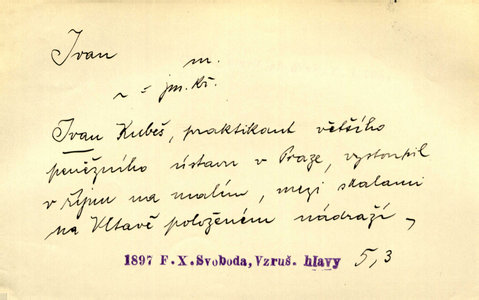 Ivan m.
~ = jm. kř.
Ivan Kubeš, praktikant většího
peněžního ústavu v Praze, vystoupil
v říjnu na malém, mezi skalami
na Vltavě položeném nádraží,
1897 F.X.Svoboda, Vzruš. hlavy 5,3